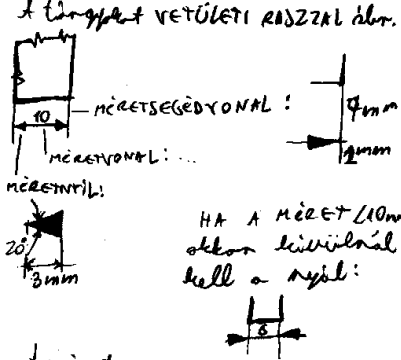 A tárgyakat VETÜLETI RAJZZAL ábr.
10
MÉRETSEGÉDVONAL:
7mm
2mm
MÉRETVONAL: ...
MÉRETNYÍL:
20°
3mm
HA A MÉRET <10m
akkor kívülről
kell a nyíl:
6